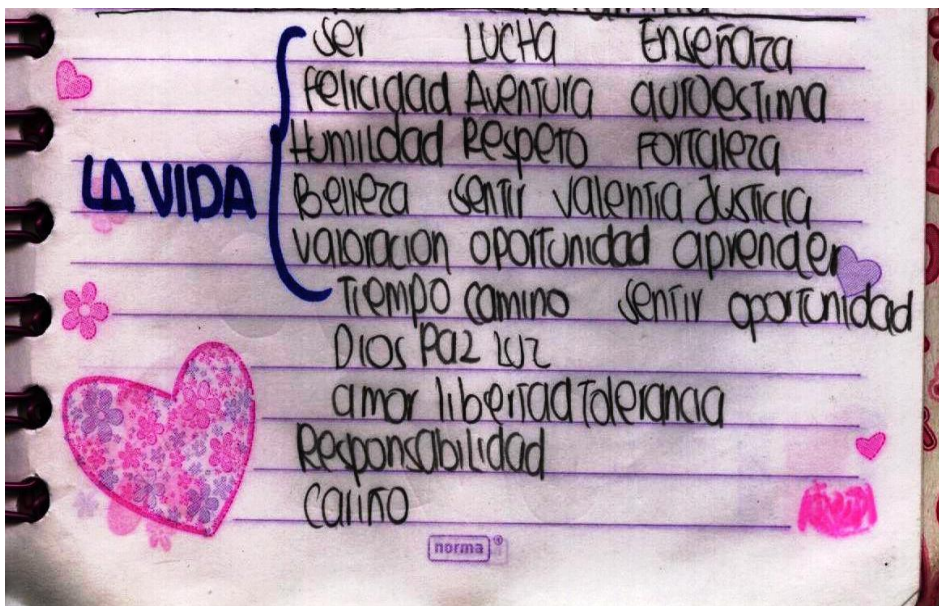 Ser LUCHA Enseñaza
Felicidad Aventura autoestima
Humildad Respeto Fortaleza
LA VIDA
Belleza sentir valentia Justicia
valoracion oportunidad aprender
Tiempo camino sentir oportunidad
Dios Paz Luz
amor libertad Tolerancia
Responsabilidad
cariño
norma